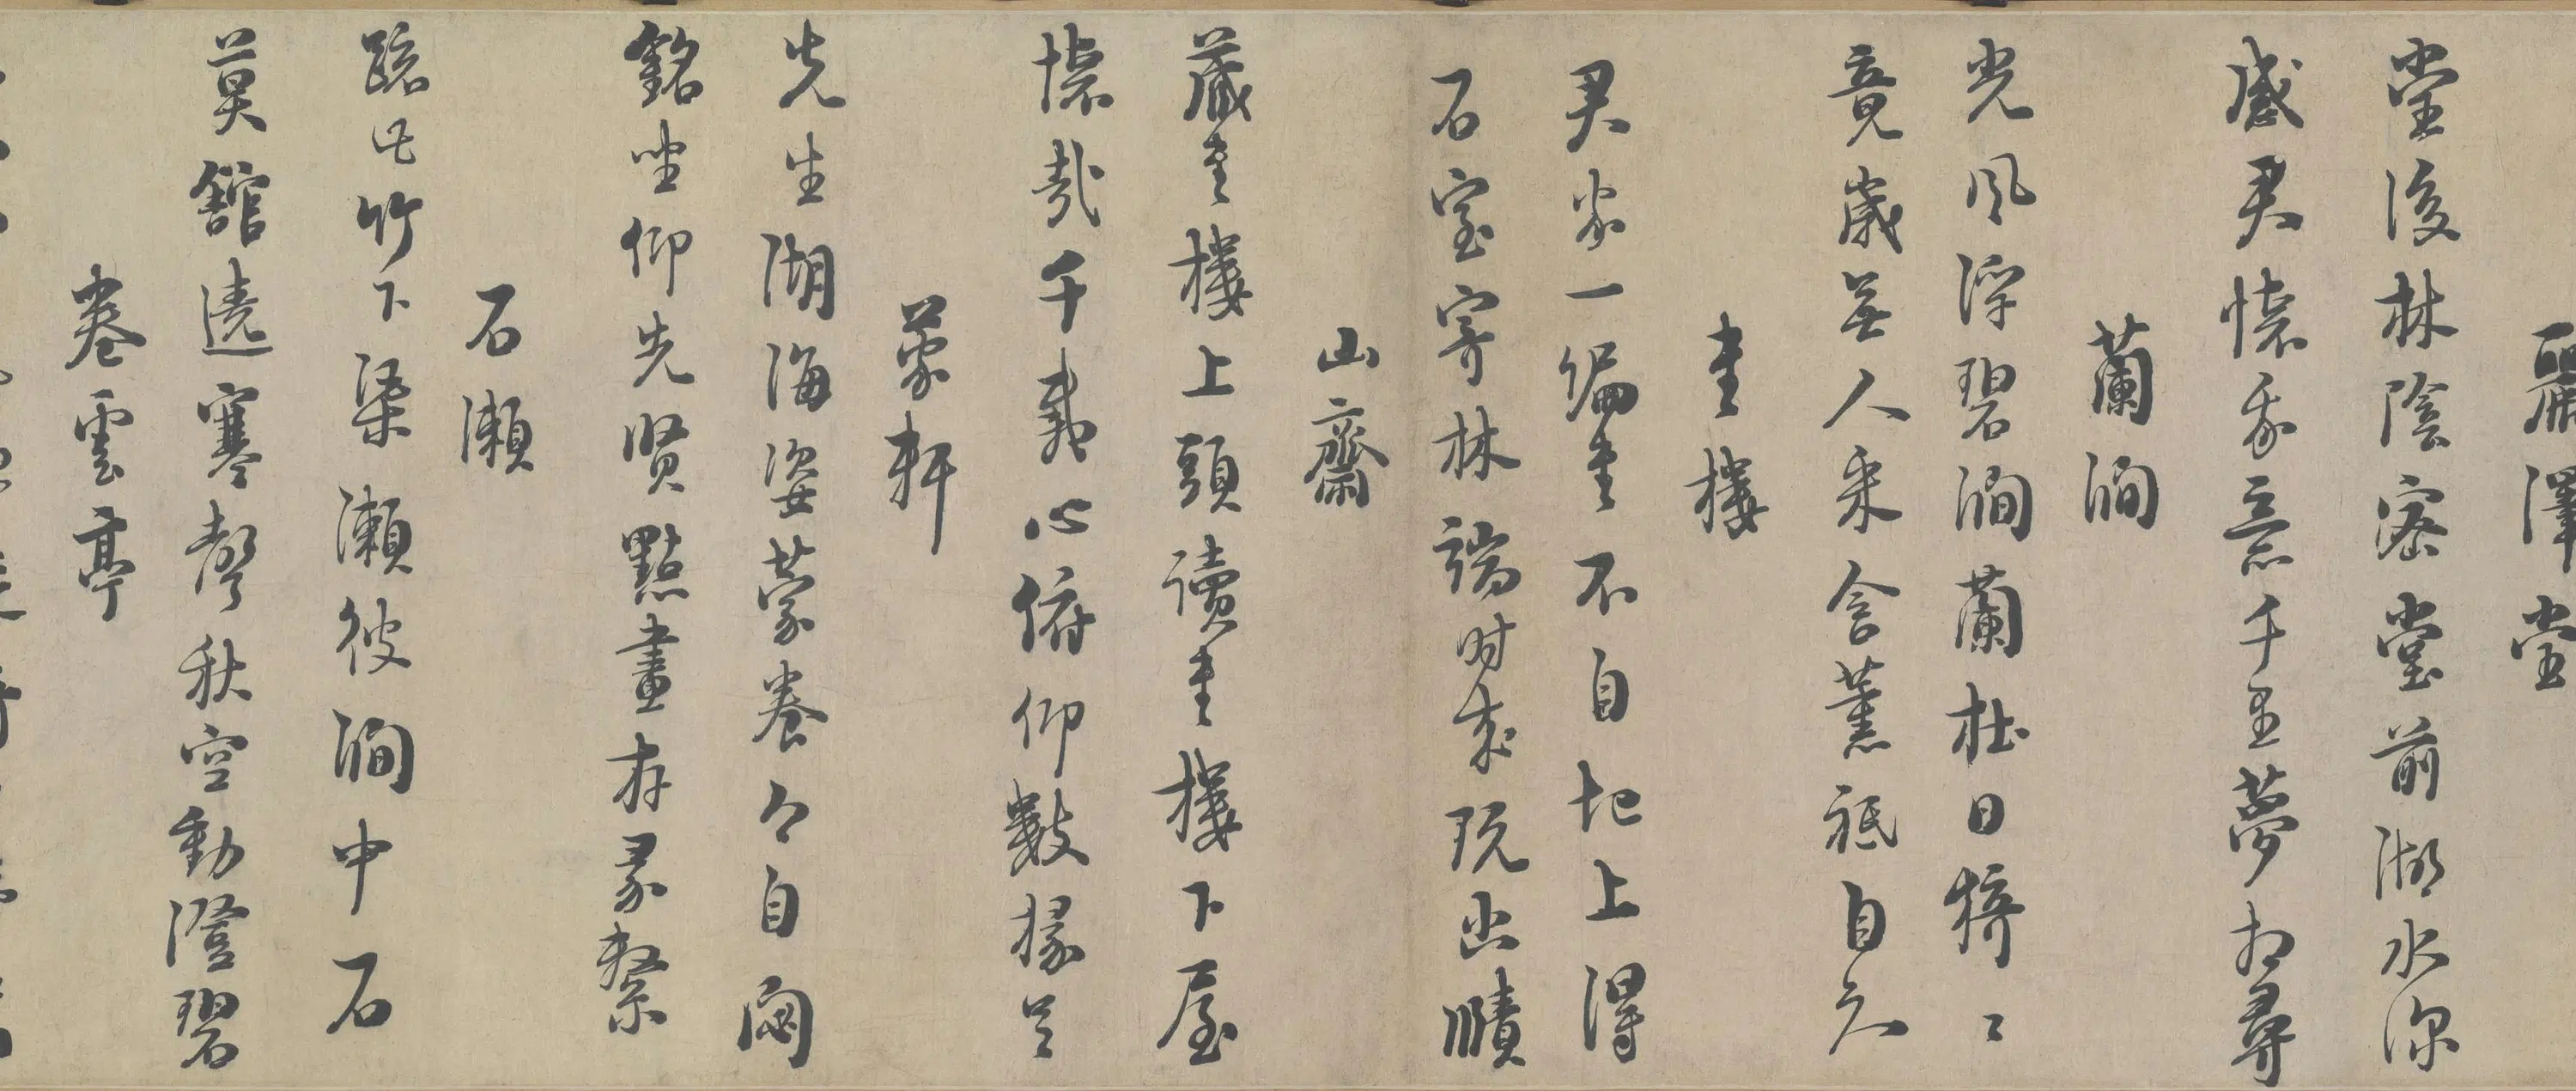 麗澤堂
堂後林陰密堂前湖水深
感君懷我意千里夢相尋
蘭澗
光風浮碧澗蘭杜日猗〻
竟歲無人采含薰祗自知
書樓
君家一編書不自圯上得
石室寄林端時來玩幽賾
山齋
藏書樓上頭讀書樓下屋
懷哉千載心俯仰數椽足
蒙軒
先生湖海姿蒙養今自閟
銘坐仰先賢點畫存彖繫
石瀨
疏此竹下渠瀨彼澗中石
莫館遶寒聲秋空動澄碧
卷雲亭